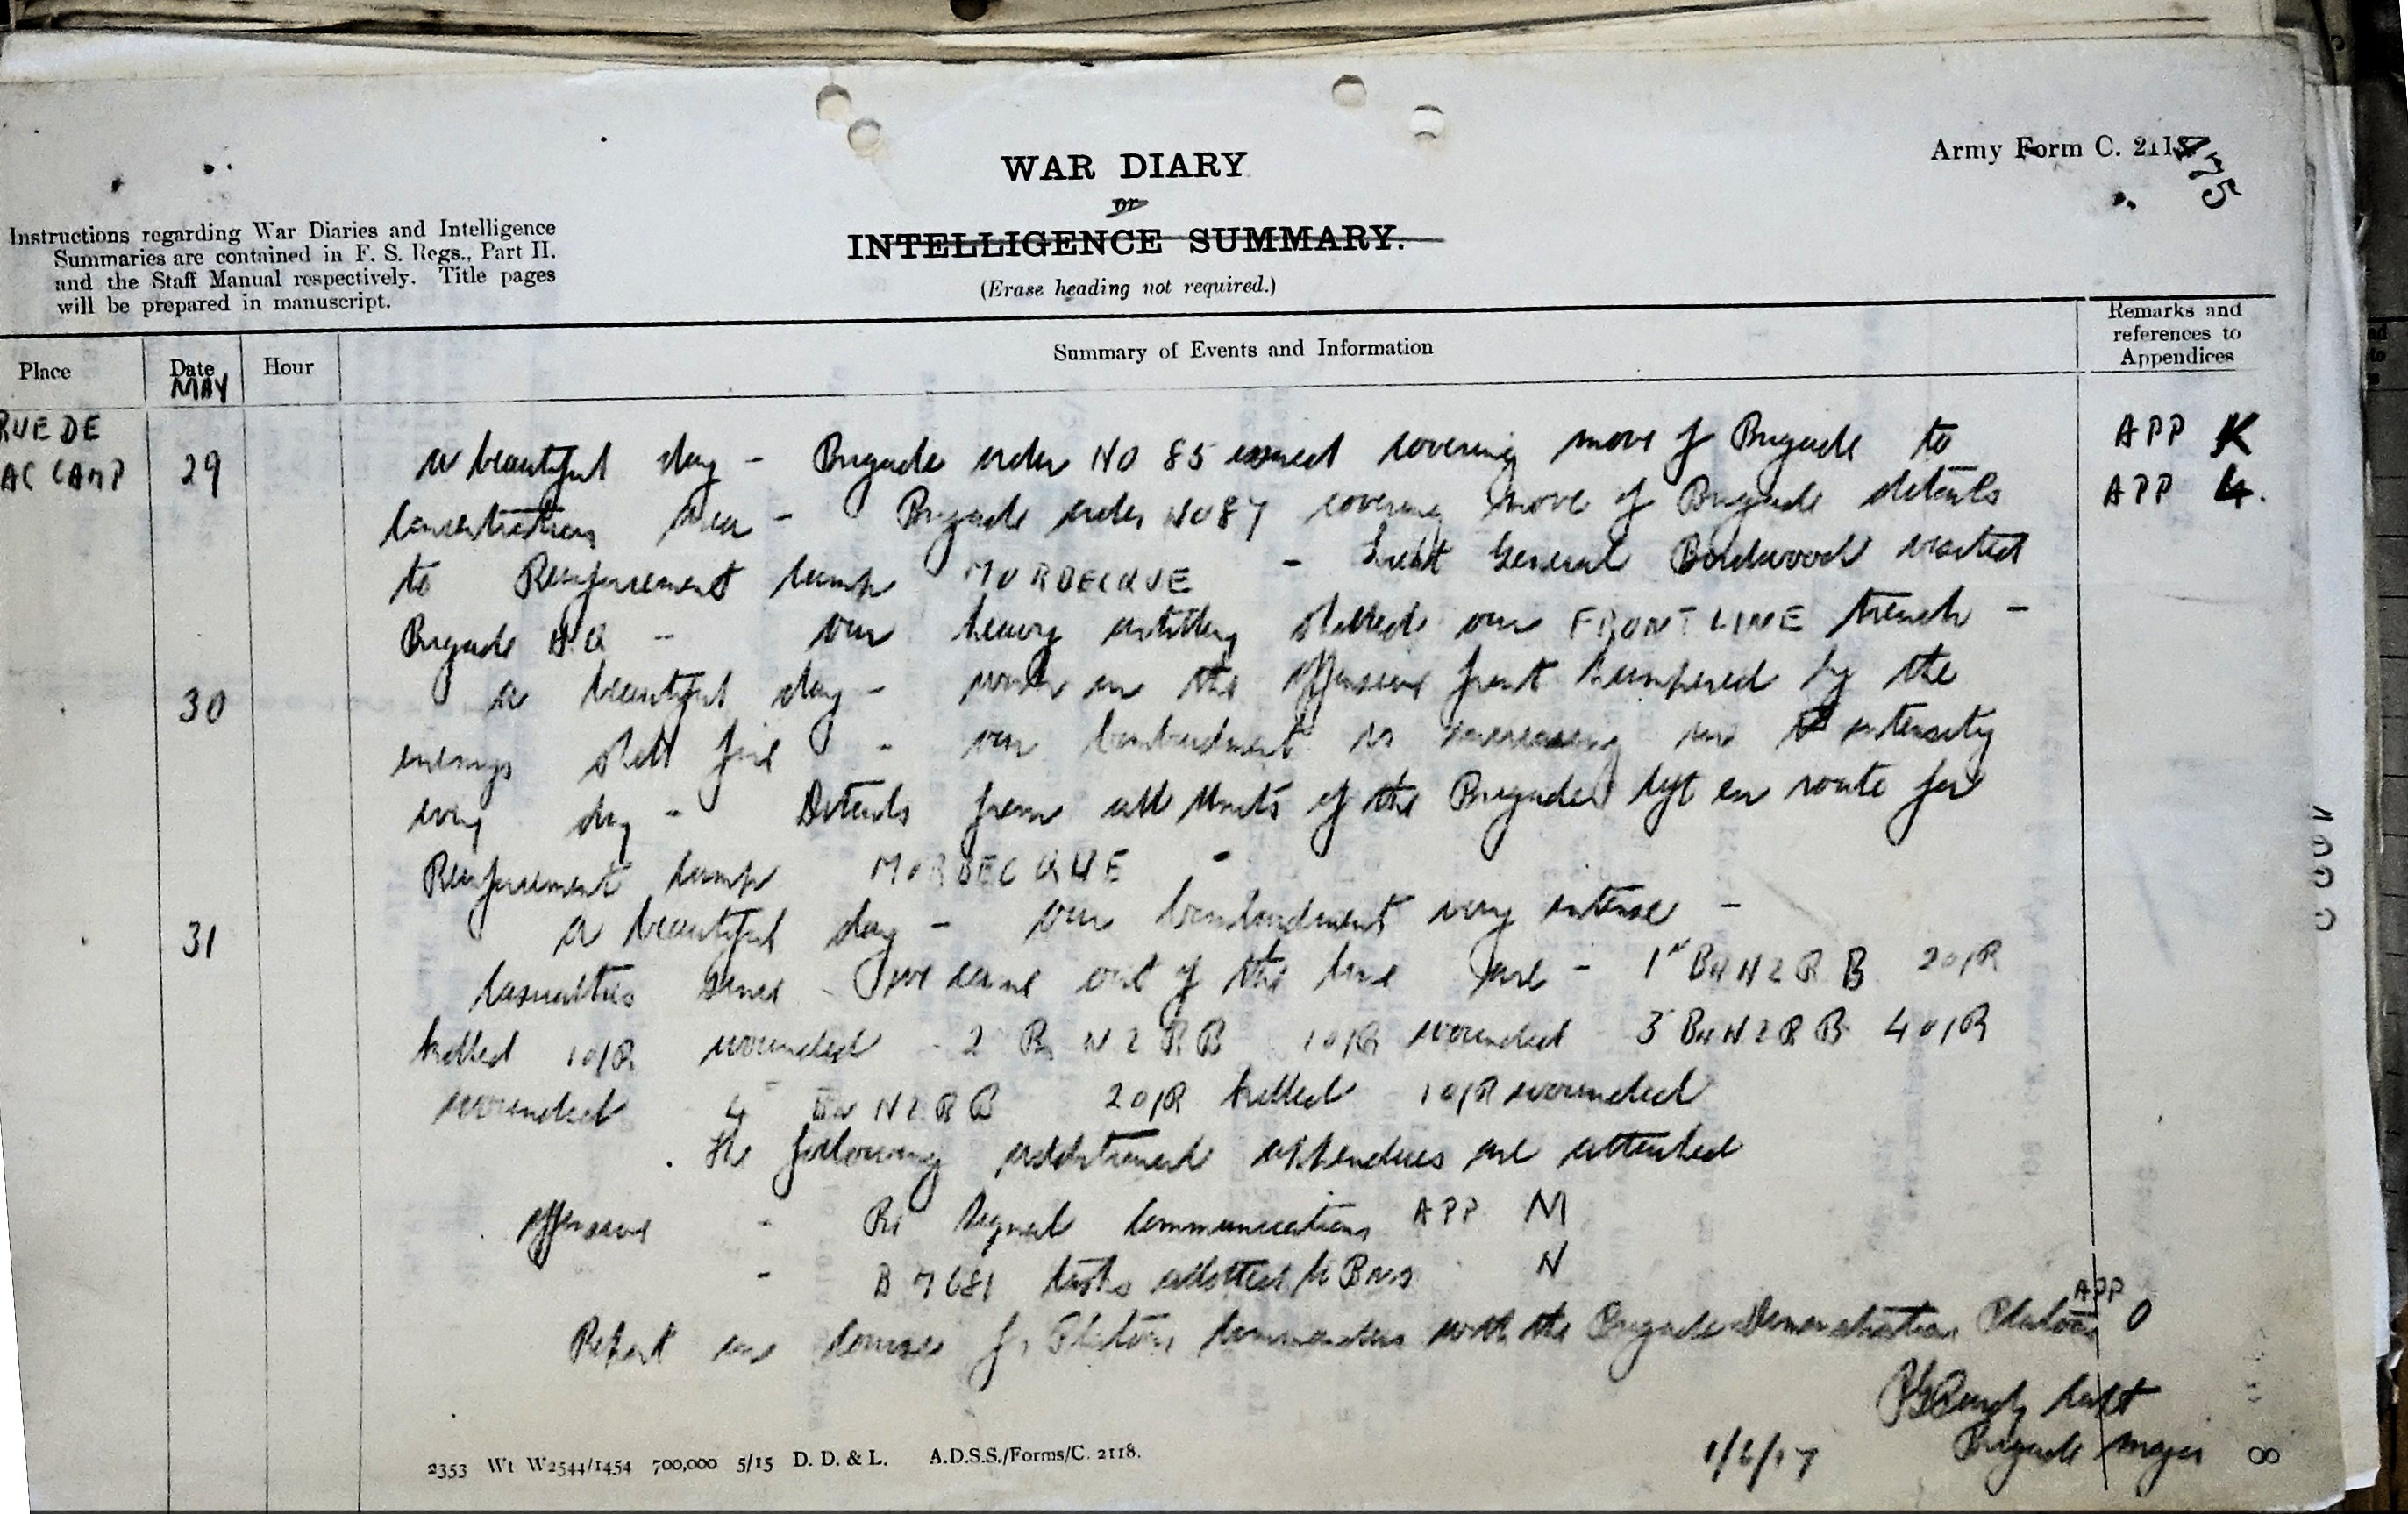 Army Form C. 2118.
475
WAR DIARY
or
INTELLIGENCE SUMMARY.
(Erase heading not required.)
Instructions regarding War Diaries and Intelligence
Summaries are contained in F. S. Regs., Part II.
and the Staff Manual respectively. Title pages
will be prepared in manuscript.
Place
Date
MAY
Hour
Summary of Events and Information
Remarks and
references to
Appendices
RUE DE
AC CAMP
29
a beautiful day - Brigade order No 85 issued covering move of Brigade to
APP K
concentration area - Brigade order No 87 covering move of Brigade details
APP L.
to Reinforcement Camp MORBECQUE - Lieut General Birdwood visited
Brigade H.Q - our heavy artillery shelled our FRONT LINE trench -
30
a beautiful day - work on the offensive front hampered by the
enemys shell fire - our bombardment is increasing in intensity
every day - Details from all Units of the Brigade left en route for
Reinforcement Camp MORBECQUE -
31
a beautiful day - our bombardment very intense -
Casualties since we came out of the line are - 1st Bn N Z R B 2 O/R
killed 1 O/R wounded - 2 Bn N Z R B 1 O/R wounded 3 Bn N Z R B 4 O/R
wounded 4 Bn N Z R B 2 O/R killed 1 O/R wounded
The following additional appendices are attached
Offensive - Re Signal Communications APP M
- B 7681 tasks allotted to Bns N
Report on Course for Platoon Commanders with the Brigade Demonstration Platoon APP O
Capt
1/6/17
Brigade Major
8
2353 Wt W2544/1454 700,000 5/15 D. D. & L. A.D.S.S./Forms/C. 2118.